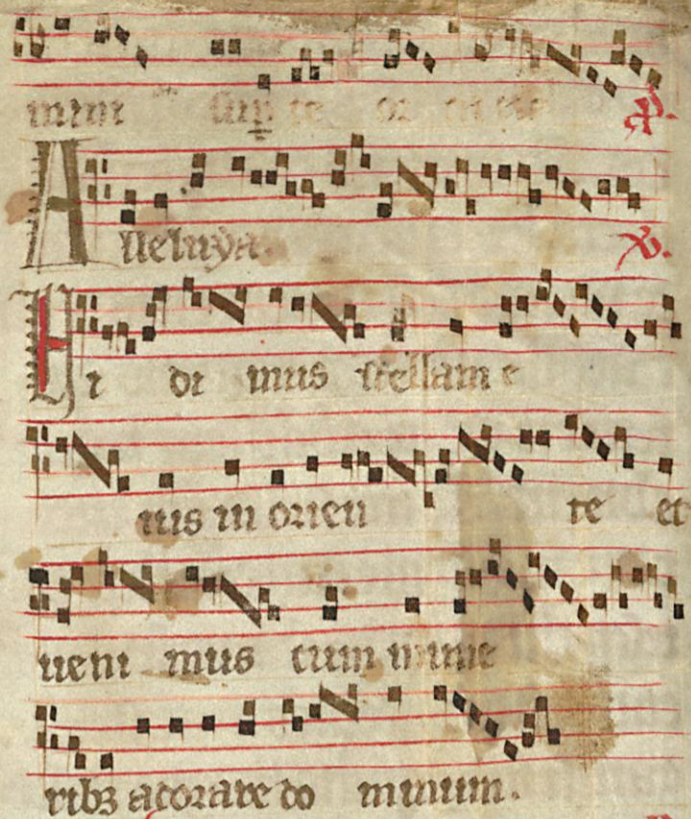 mini sup te or ta est
Alleluya.
Vi di mus stellam e
ius in orien te et
veni mus cum mune
ribz adorare do minum.